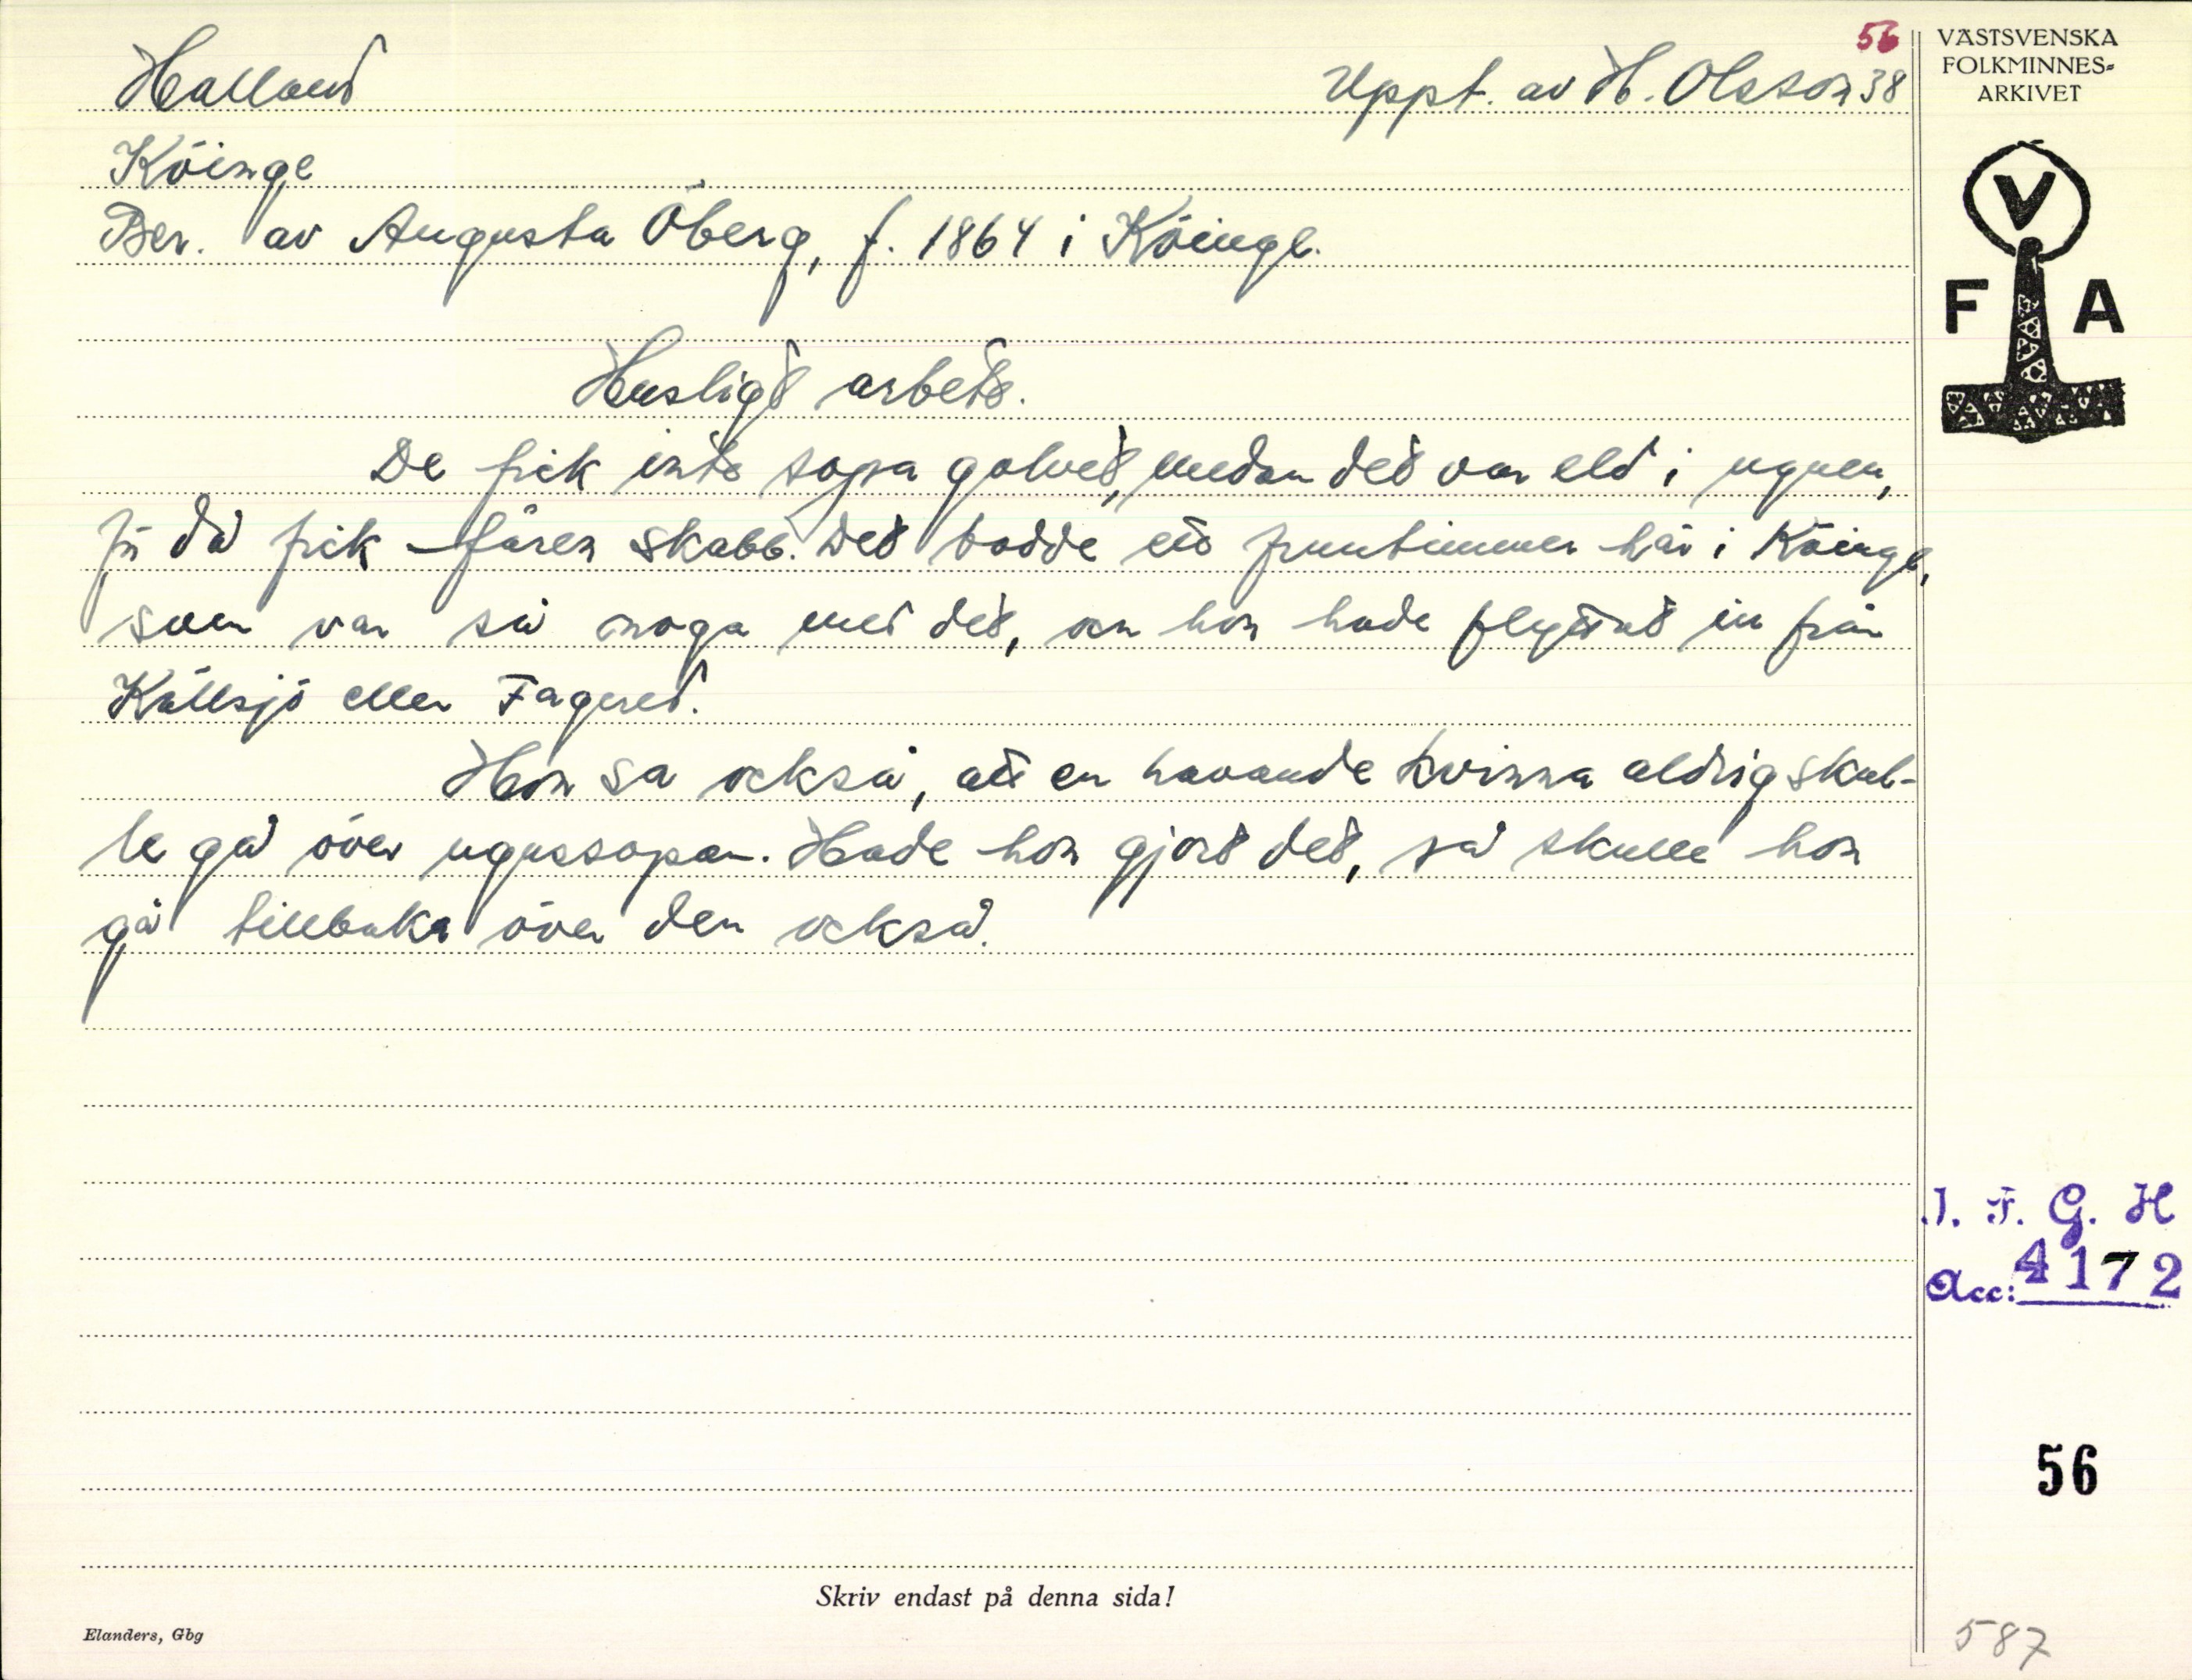 56
Halland
Uppt. av H. Olsson 38
Köinge
Ber. av Augusta Öberg, f. 1864 i Köinge.
Husligt arbete.
De fick inte sopa golvet, medan det var eld i ugnen,
för då fick fåren skabb. Det bodde ett fruntimmer här i Köinge,
som var så noga med det, om hon hade flyttat in från
Källsjö eller Fagered.
Hon sa också, att en havande kvinna aldrig skul-
le gå över ugnssopan. Hade hon gjort det, så skulle hon
gå tillbaka över den också.
Skriv endast på denna sida!
Elanders, Gbg
VÄSTSVENSKA
FOLKMINNES-
ARKIVET
V
F A
I. F. G. H
Acc: 4172
56
587